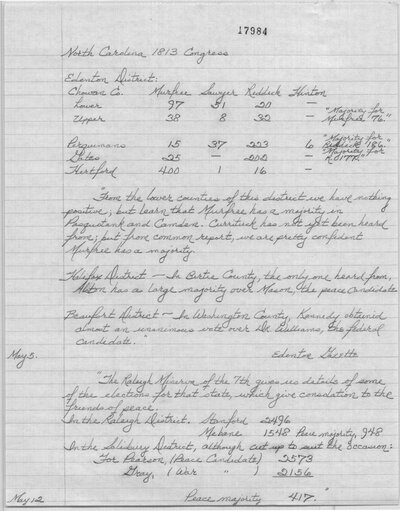 17984
North Carolina 1813 Congress
Edenton District:
Chowan Co. Murfree Sawyer Riddick Hinton
Lower 97 51 20 — "Majority for
Upper 38 8 32 — Murfree 76."
Perquimans 15 37 223 6 "Majority for Riddick 186."
Gates 25 — 202 — "Majority for R. 0177."
Hertford 400 1 16 —
"From the lower counties of this district we have nothing
positive; but learn that Murfree has a majority in
Pasquotank and Camden. Currituck has not yet been heard
from; but from common report, we are pretty confident
Murfree has a majority.
Halifax District — In Bertie County, the only one heard from,
Alston has a large majority over Mason, the peace candidate
Beaufort District — In Washington County, Kennedy obtained
almost an unanimous vote over Dr. Williams, the federal
candidate."
May 5. Edenton Gazette
"The Raleigh Minerva of the 7th gives us details of some
of the elections for that state, which give consolation to the
friends of peace.
In the Raleigh District. Stanford 2496
Mebane 1548 Peace majority, 948
In the Salisbury District, although cut up to suit the occasion:
For Pearson, (Peace Candidate) 2573
Gray, (War " ) 2156
May 12 Peace majority 417."